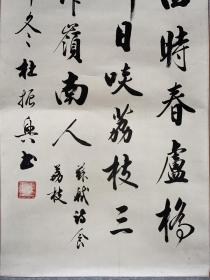 四時春盧橘
日啖荔枝三
作嶺南人
蘇軾詩食
荔枝
冬杜振興书